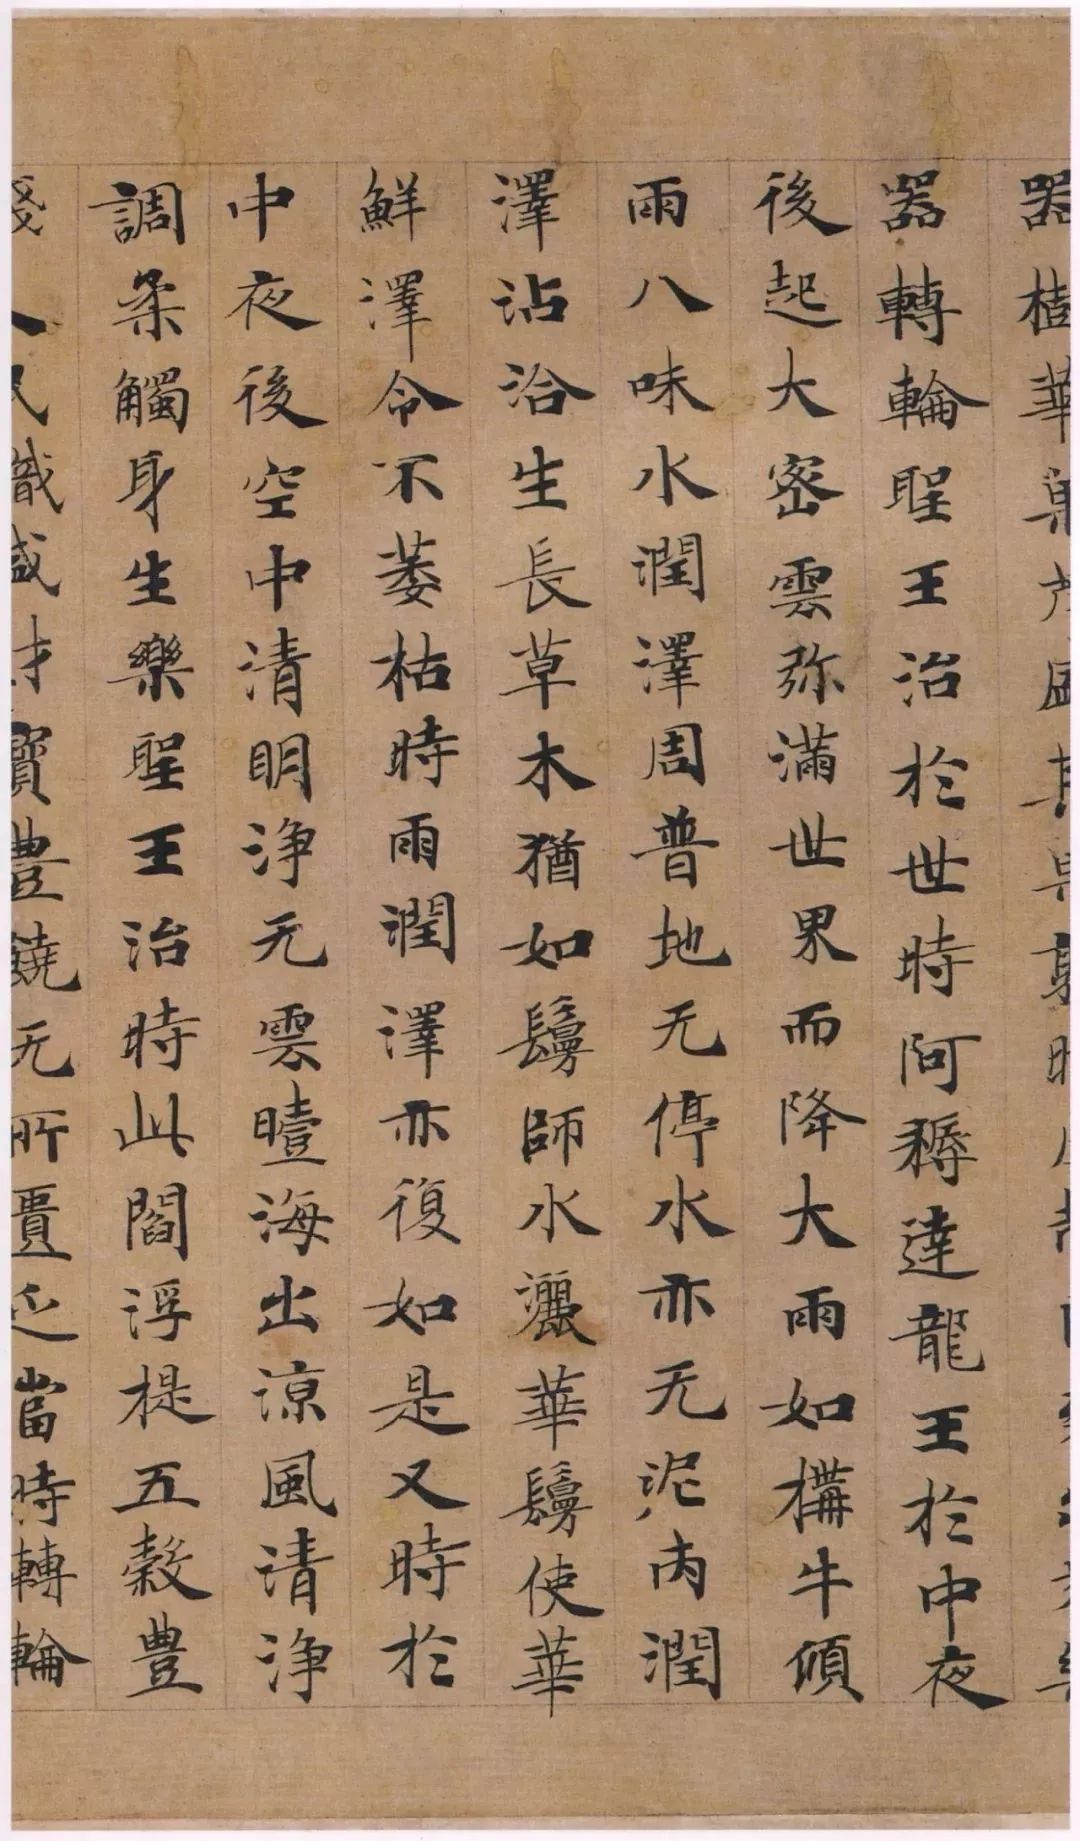 器樹華菓茂盛其
器轉輪聖王治於世時阿耨達龍王於中夜
後起大密雲弥滿世界而降大雨如構牛傾
雨八味水潤澤周普地无停水亦无泥洿潤
澤沾洽生長草木猶如鬘師水灑華鬘使華
鮮澤令不萎枯時雨潤澤亦復如是又時於
中夜後空中清明浄无雲曀海出涼風清浄
調柔觸身生樂聖王治時此閻浮提五穀豊
賤人民熾盛財寶豊饒无所匱乏當時轉輪